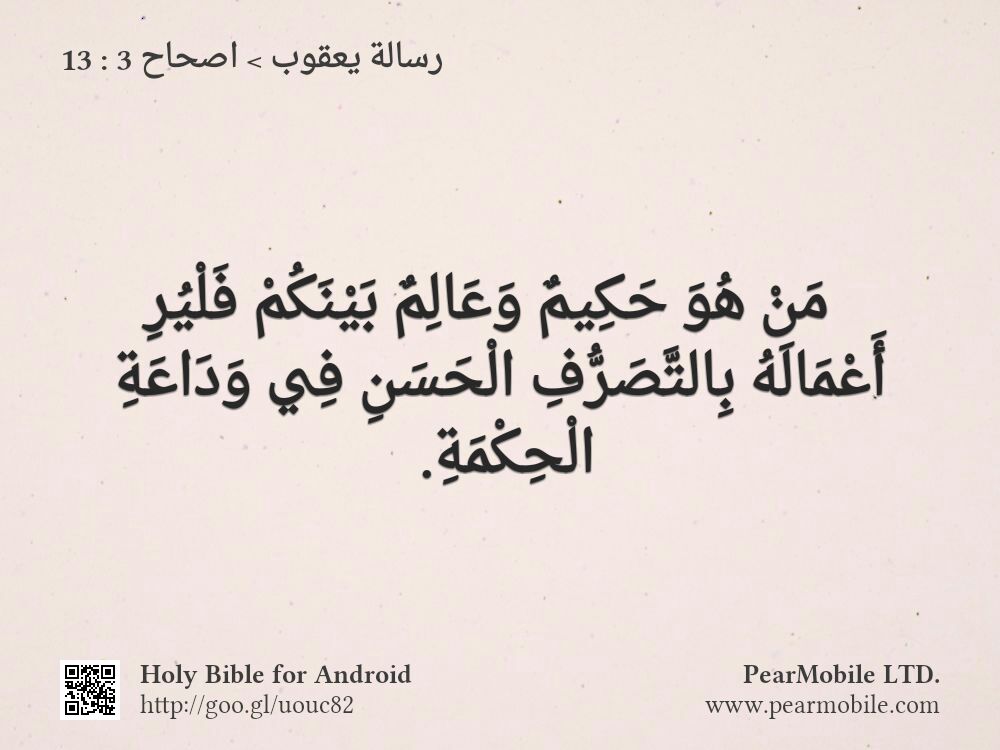 رسالة يعقوب > اصحاح 3 : 13
مَنْ هُوَ حَكِيمٌ وَعَالِمٌ بَيْنَكُمْ فَلْيُرِ
أَعْمَالَهُ بِالتَّصَرُّفِ الْحَسَنِ فِي وَدَاعَةِ
الْحِكْمَةِ.
Holy Bible for Android
http://goo.gl/uouc82
PearMobile LTD.
www.pearmobile.com